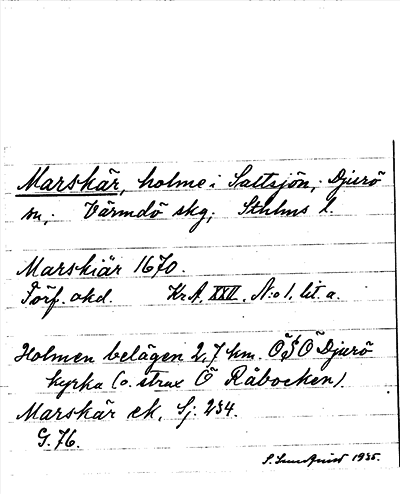 Marskär, holme i Saltsjön, Djurö
sn, Värmdö skg, Sthlms l.
Marskiär 1670.
Förf. okd. Kr.A. XXVI. N:o 1, lit. a.
Holmen belägen 2,7 km. ÖSÖ Djurö
kyrka (o. strax Ö Råbocken).
Marskär ek. Sj. 234.
G. 76.
S. Lundqvist 1935.